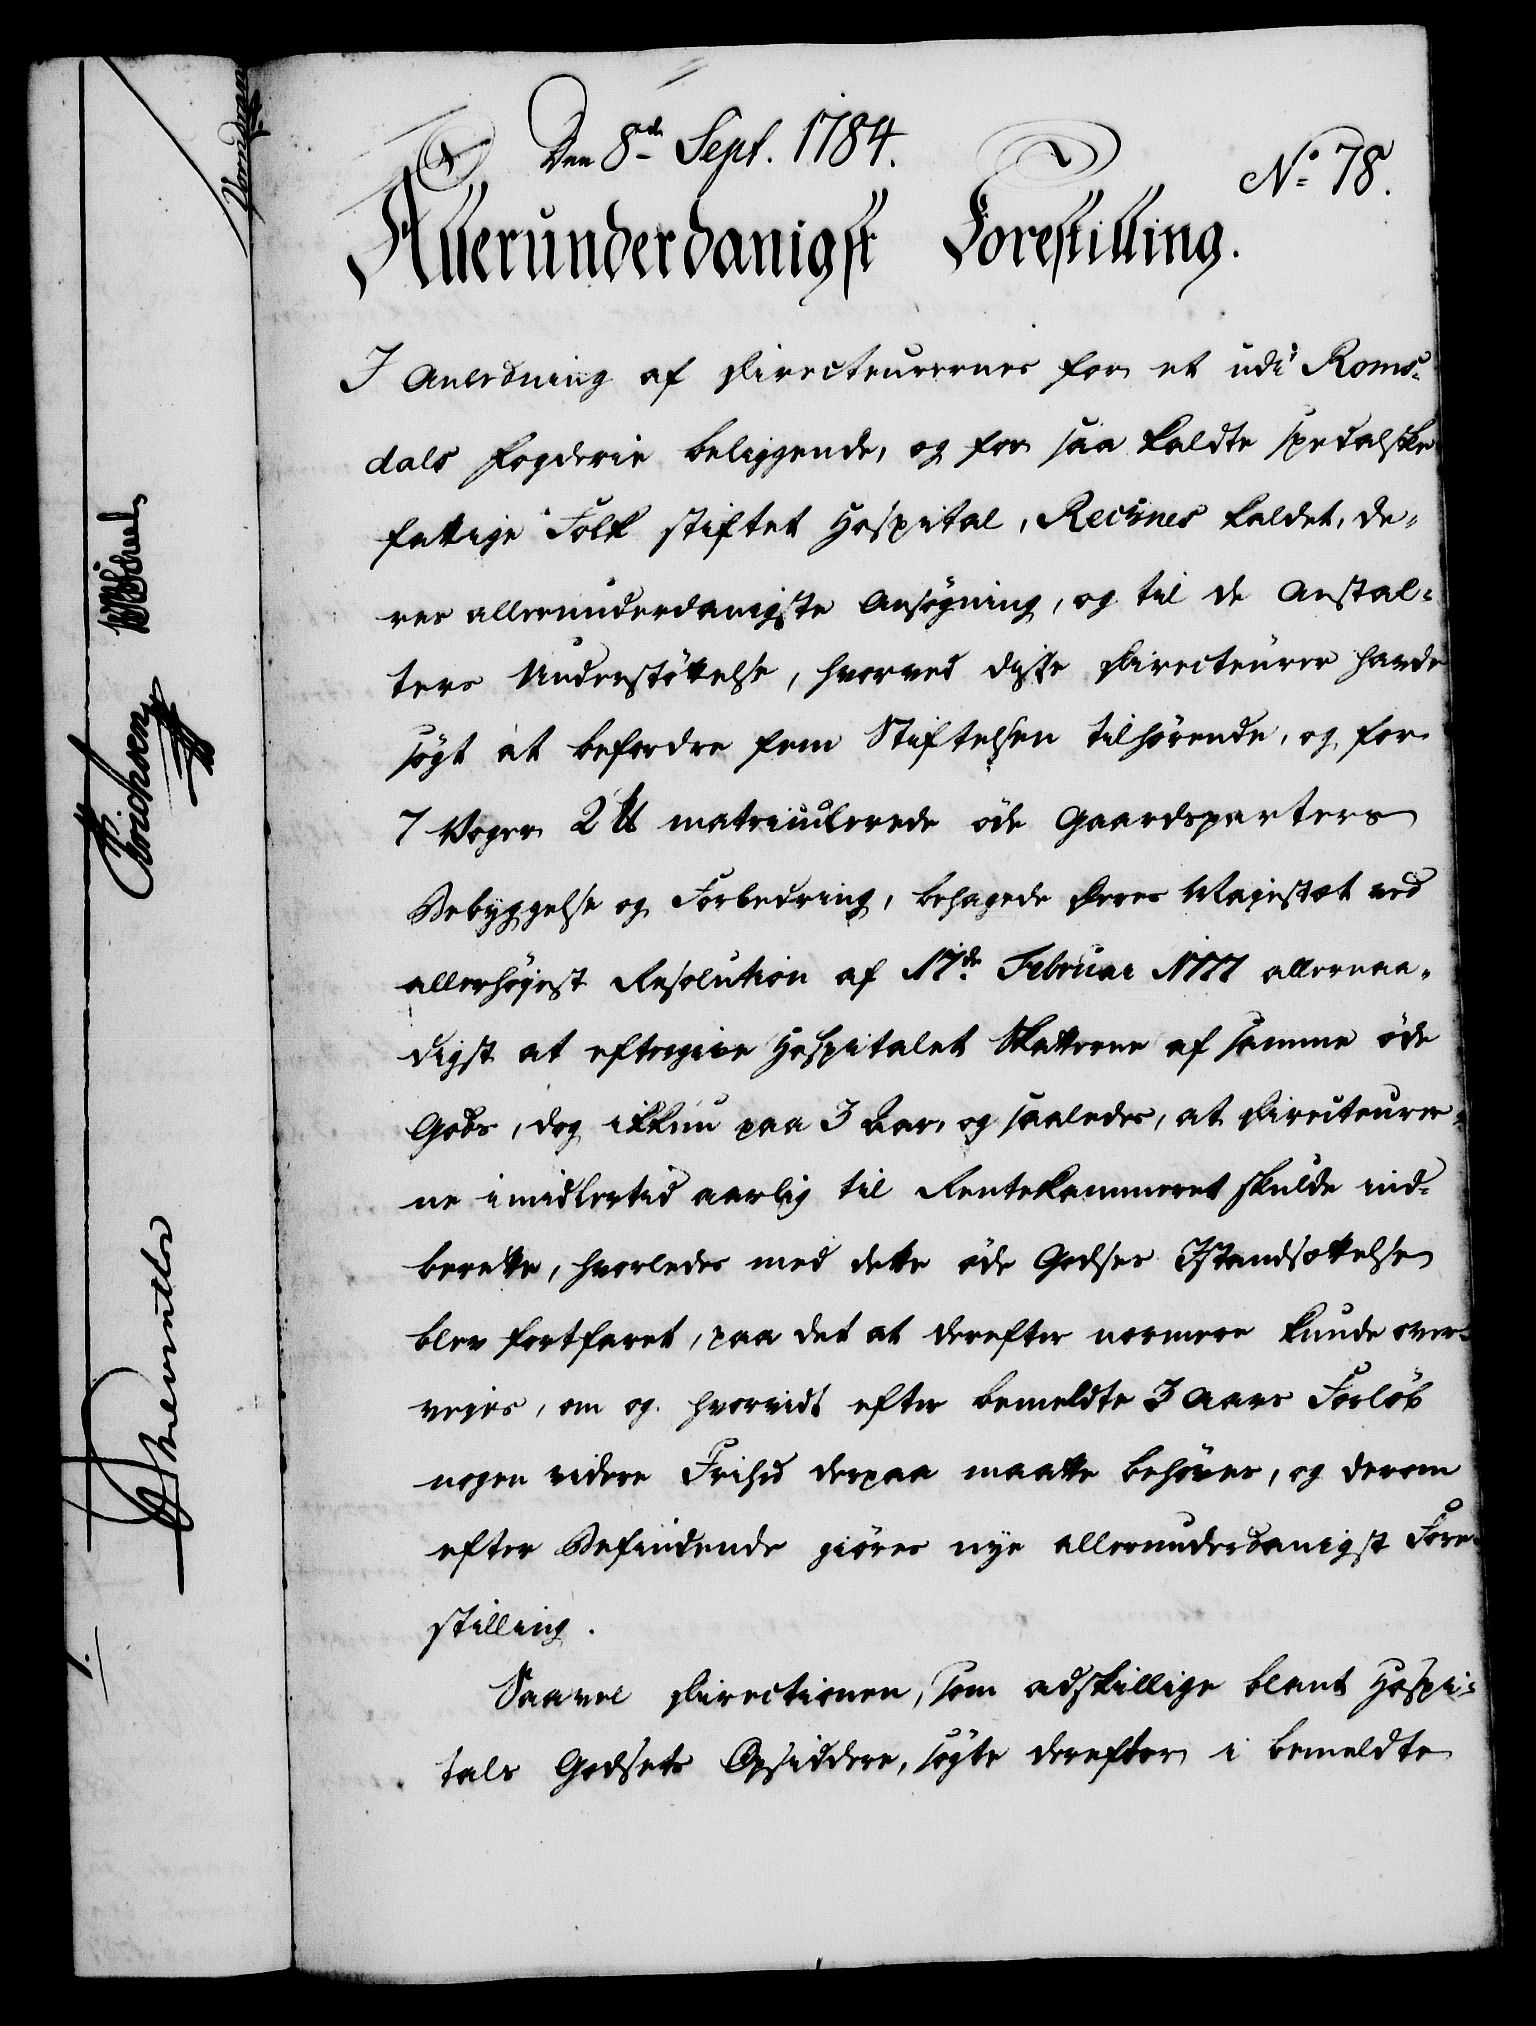 Den 8de Sept. 1784.
No 78.
Allerunderdanigst Forestilling.
I Anledning af Directeurernes for et udi Roms-
dals Fogderie beliggende, og for saa kaldte spedalske
fattige Folk stiftet Hospital, Recknes kaldet, de-
res allerunderdanigste Ansøgning, og til de Anstal-
ters Understøttelse, hvorved disse Directeurer havde
søgt at befordre fem Stiftelsen tilhørende, og for
7 Voger 2 ℔ matriculerede øde Gaardsparters
Bebyggelse og Forbedring, behagede Deres Majestæt ved
allerhøjest Resolution af 17de Februar 1777 allernaa-
digst at eftergive Hospitalet Skatterne af samme øde
Gods, dog ikkun paa 3 Aar, og saaledes, at Directeurer-
ne imidlertid aarlig til Rentekammeret skulde ind-
berette, hvorledes med dette øde Godses Istandsættelse
blev fortfaret, paa det at derefter nærmere kunde over-
vejes, om og hvorvidt efter bemeldte 3 Aars Forløb
nogen videre Frihed derpaa maatte behøves, og derom
efter Befindende giøres nye allerunderdanigst Fore-
stilling.
Saavel Directionen, som adskillige blant Hospi-
tals Godsets Opsiddere, søgte derefter i bemeldte